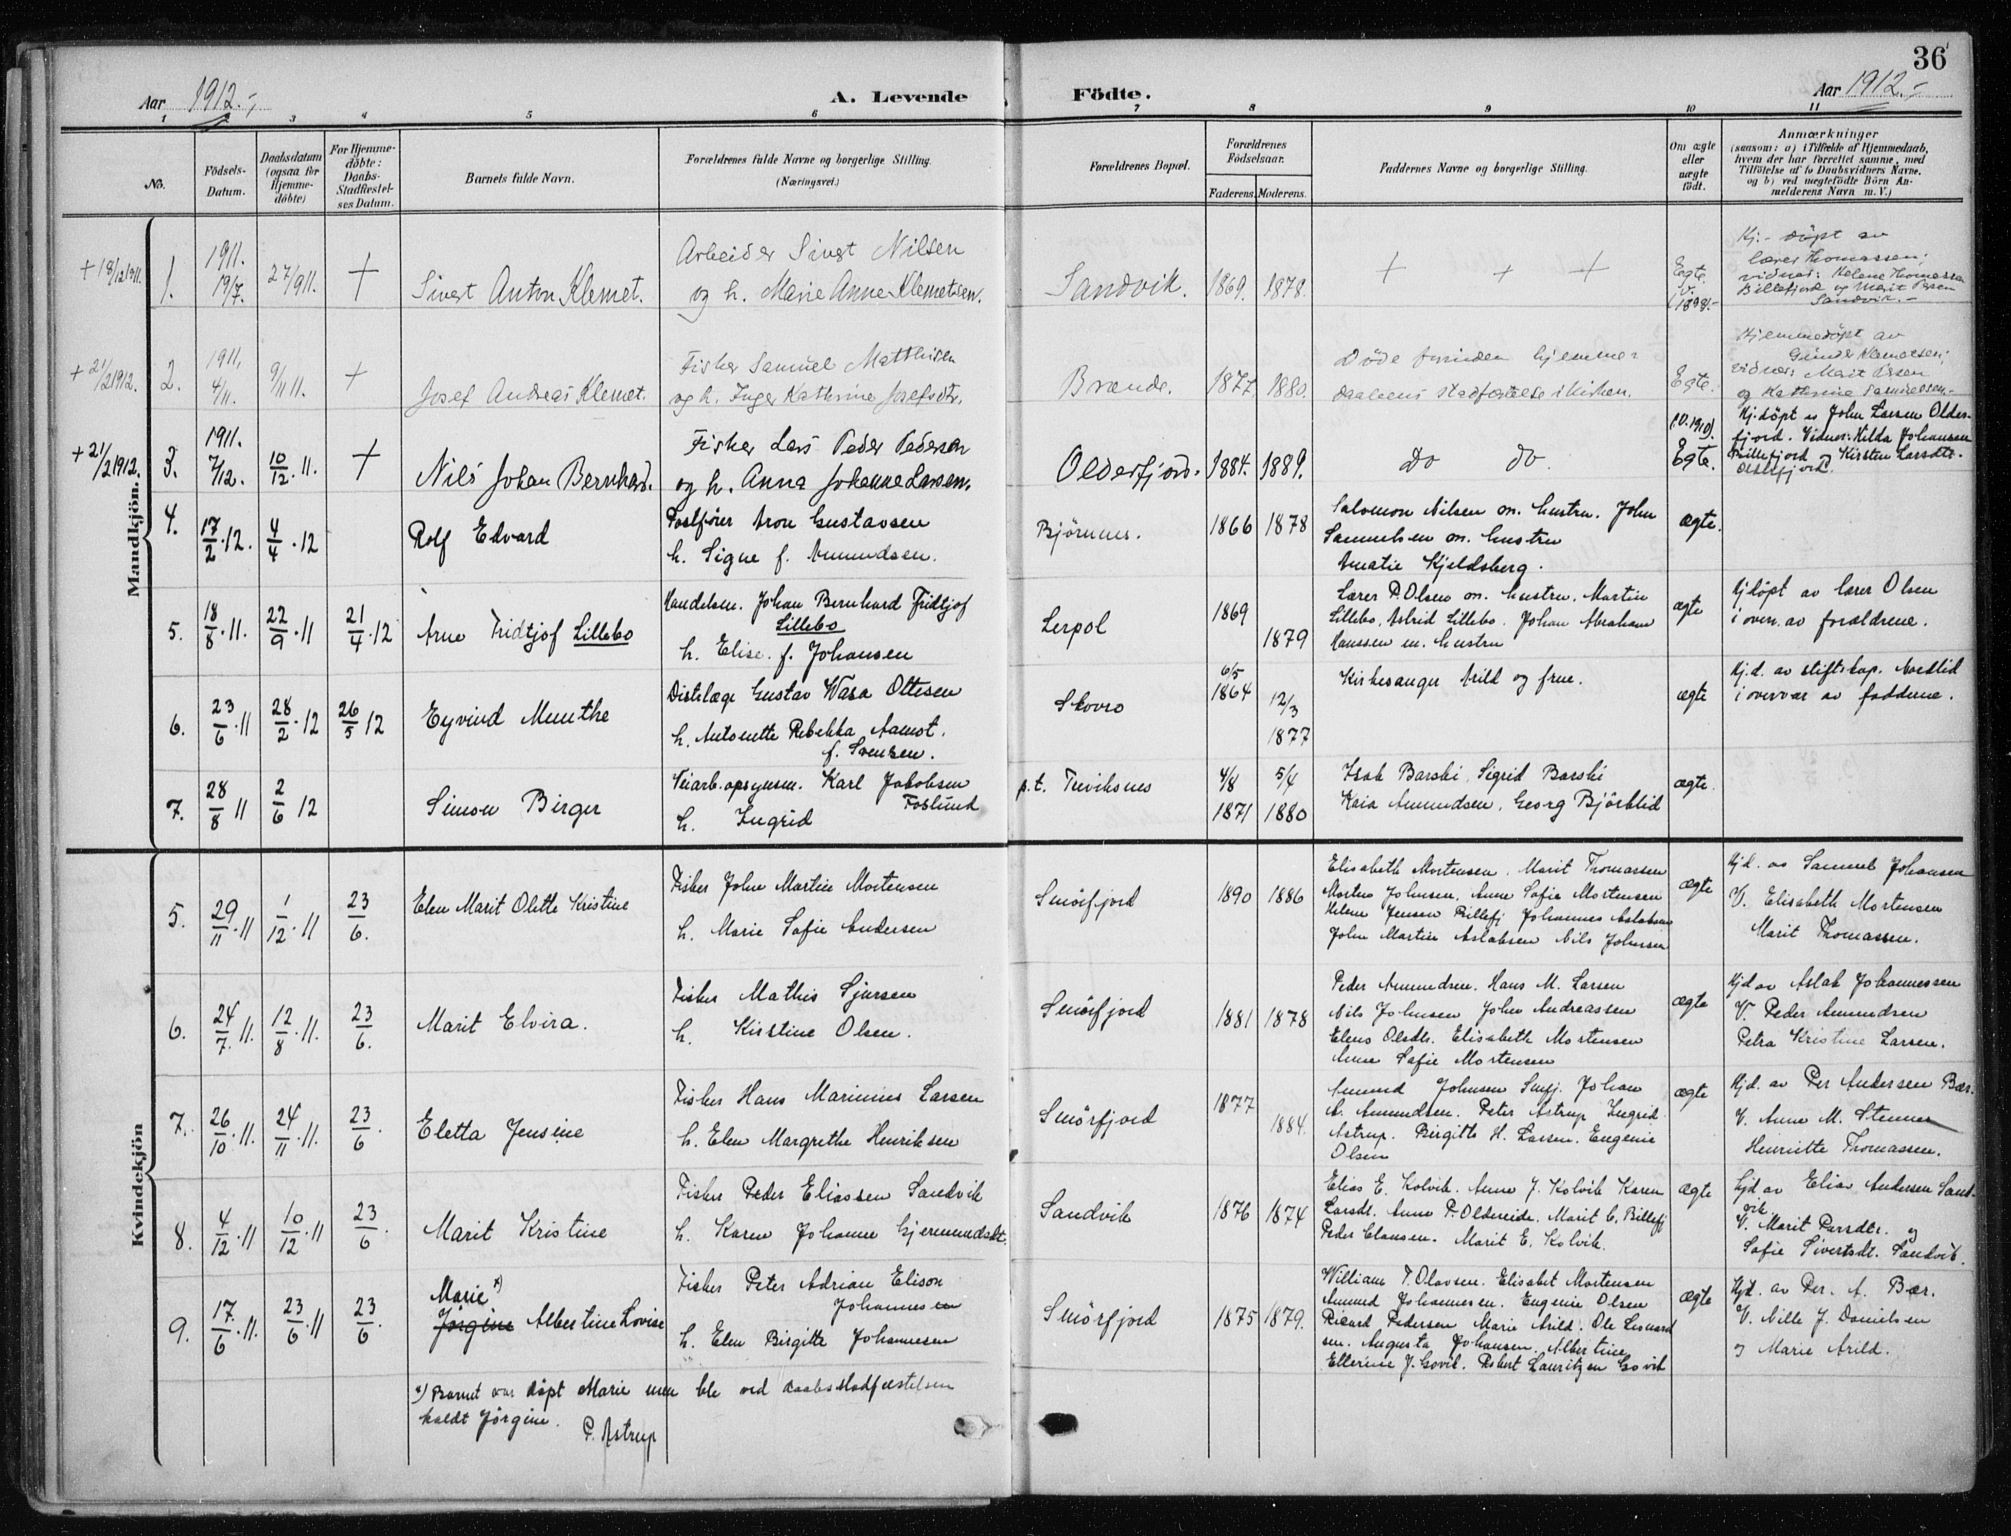 36
Aar 1912.-
A. Levende Födte.
Aar 1912.-
1 3 4 5 6 7 8 9 10 11
No.
Födsels-Datum.
Daabsdatum (ogsaa for Hjemme-döbte)
For Hjemme-döbte: Daabs-Stadfæstel-ses Datum.
Barnets fulde Navn.
Forældrenes fulde Navne og borgerlige Stilling.
(Næringsvei.)
Forældrenes Bopæl.
Forældrenes Födselsaar.
Faderens. Moderens.
Faddernes Navne og borgerlige Stilling.
Om ægte eller uægte födt.
Anmærkninger
(saasom: a) i Tilfælde af Hjemmedaab, hvem der har forrettet samme, med Tilföielse af to Daabsvidners Navne, og b) ved uægtefödte Börn An-melderens Navn m. V.)
Mandkjön.
+ 18/12 1911.
1.
1911.
19/7.
27/9 11.
+
Sivert Anton Klemet.
Arbeider Sivert Nilsen
og h. Marie Anne Klemetsen.
Sandvik.
1869. 1878.
+ + +
Egte
Hj.- döpt av
lærer Thomassen;
vidner: Helene Thomassen
Billefjord og Marit
Sandvik.-
+ 21/2 1912.
2.
1911.
4/11.
9/11 11.
+
Josef Andreas Klemet.
Fisker Samuel Matthisen
og h. Inger Kathrine Josefsdtr.
Brænde.
1877 1880.
Döde forinden hjemme-
daabens stadfæstelse i kirken.
Egte.
Hjemmedöpt av
vidner: Marit
og Kathrine Samuelsen.
+ 21/2 1912.
3.
1911.
7/12.
10/12 11.
+
Nils Johan Bernhard.
Fisker Lars Peder Pedersen
og h. Anna Johanne Larsen.
Olderfjord.
1884. 1889.
do do.
Egte.
Hj.döpt av John Larsen Older-
fjord. Vidner: Hilda Johansen
Billefjord og Kirsten Larsdtr.
Olderfjord.
4.
17/2 . 12.
4/4 . 12
Rolf Edvard
Postförer Aron Gustavsen
h. Signe f. Amundsen.
Björnnes.
1866 1878
Salomon Nilsen m. hustru. John
Samuelsen m. hustru
Amalie Kjeldsberg.
ægte.
5.
18/8 . 11.
22/9 . 11
21/4 . 12
Arne Fridtjof Lillebo
Handelsm. Johan Bernhard Fridtjof
Lillebo
h. Elise. f. Johansen
Lerpol
1869 1879
Lærer P. Olsen m. hustru. Martin
Lillebo, Astrid Lillebo. Johan Abraham
Hanssen m. hustru
ægte
Hj.döpt av lærer Olsen
i overv. av forældrene.
6.
23/6 . 11
28/2 . 12
26/5 12
Eyvind Munthe
Distslæge Gustav Wasa Ottesen
h. Antonette Rebekka Aamot.
f. Svensen.
Skovro
6/5 1864
12/3 1877
Kirkesanger Arild og frue.
ægte
Hj.d. av stiftskap. Nordlid
i overvær av fadderne.
7.
28/8 11
2/6 12
Simon Birger
Veiarb.opsynsm. Karl Jakobsen
Foslund
h. Ingrid
p.t. Turviksnes
4/8 1871
5/4 1880
Isak Barski, Sigrid Barski
Kaia Amundsen, Georg Björklid
ægte.
Kvindekjön
5.
29/11 . 11
1/12 . 11
23/6.
Elen Marit Olette Kristine
Fisker John Martin Mortensen
h. Marie Sofie Andersen
Smörfjord
1890 1886
Elisabeth Mortensen. Marit Thomassen
Morten Johnsen, Anne Sofie Mortensen
Helene Jensen Billefj Johannes Aslaksen
John Martin Aslaksen Nils Johnsen
ægte
Hjd. av Samuel Johansen
V. Elisabeth Mortensen
Marit Thomassen.
6.
24/7 . 11.
12/8 . 11.
23/6.
Marit Elvira.
Fisker Mathis Sjursen
h. Kirstine Olsen.
Smörfjord
1881 1878
Peder Amundsen. Hans M. Larsen
Nils Johnsen John Andreassen
Elens Olsdtr. Elisabeth Mortensen
Anne Sofie Mortensen
ægte
Hjd av Aslak Johannessen
V. Peder Amundsen
Petra Kristine Larsen.
7.
26/10 . 11.
24/11 . 11.
23/6 .
Eletta Jensine
Fisker Hans Marinius Larsen
h. Elen Margrethe Henriksen
Smörfjord
1877 1884.
Amund Johnsen Smfj. Johan
A. Amundsen. Peter Astrup, Ingrid
Astrup. Birgitte H. Larsen. Eugenie
Olsen
ægte
Hjd. av Per Andersen Bær.
V. Anne M. Stenner
Henriette Thomassen.
8.
4/12 . 11
10/12 . 11
23/6 .
Marit Kristine
Fisker Peder Eliassen Sandvik
h. Karen Johanne Gjermundsdt.
Sandvik
1876 1874
Elias E. Kolvik. Anne J. Kolvik Karen
Larsdt. Anne P. Oldereide. Marit C. Billefj
Peder Clausen. Marit E. Kolvik.
ægte
Hjd av Elias Andersen Sand-
vik.
V. Marit Persdtr. og
Sofie Sivertsdt. Sandvik.
9.
17/6 . 11.
23/6 . 11
23/6 .
Marie x)
Jörgine Albertine Lovise
Fisker Peter Adrian Elison
Johannesen
h. Elen Birgitte Johannesen
Smörfjord
1875 1879.
William T. Olavsen. Elisabet Mortensen
Amund Johannesen. Eugenie Olsen
Rikard Pedersen Marie Arild. Ole Lennard
sen. Augusta Johansen, Albertine
Ellerine J. Govik. Robert Lauritzen Govik
ægte
Hjd. av Per. A. Bær.
V. Nille J. Danielsen
og Marie Arild.
x) Barnet var döpt Marie men ble ved daabsstadfæstelsen
kaldt Jörgine.
P. Astrup